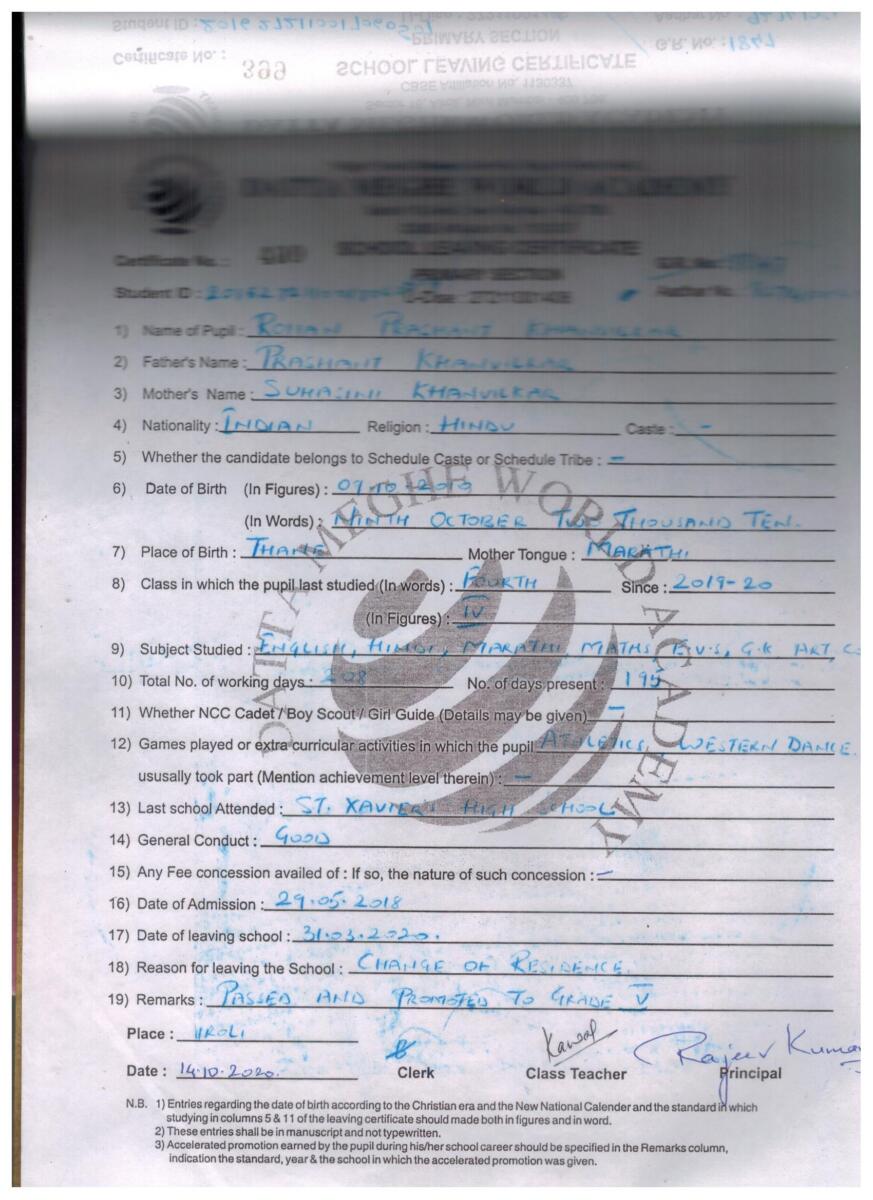 Student ID :
PRIMARY SECTION
G.R. No. : 1847
Certificate No. : 399 SCHOOL LEAVING CERTIFICATE
CBSE Affiliation No. 1130337
DATTA MEGHE WORLD ACADEMY
SCHOOL LEAVING CERTIFICATE
Certificate No. :
PRIMARY SECTION
Student ID :
1) Name of Pupil : ROHAN PRASHANT KHANVILKAR
2) Father's Name : PRASHANT KHANVILKAR
3) Mother's Name : SUHASINI KHANVILKAR
4) Nationality : INDIAN Religion : HINDU Caste : -
5) Whether the candidate belongs to Schedule Caste or Schedule Tribe : -
6) Date of Birth (In Figures) : 09-10-2010
(In Words) : NINTH OCTOBER TWO THOUSAND TEN.
7) Place of Birth : THANE Mother Tongue : MARATHI
8) Class in which the pupil last studied (In words) : FOURTH Since : 2019-20
(In Figures) : IV
9) Subject Studied : ENGLISH, HINDI, MARATHI, MATHS, E.V.S, G.K ART, C
10) Total No. of working days : 208 No. of days present : 195
11) Whether NCC Cadet / Boy Scout / Girl Guide (Details may be given) -
12) Games played or extra curricular activities in which the pupil ATHLETICS, WESTERN DANCE.
ususally took part (Mention achievement level therein) : -
13) Last school Attended : ST. XAVIER'S HIGH SCHOOL
14) General Conduct : GOOD
15) Any Fee concession availed of : If so, the nature of such concession : -
16) Date of Admission : 29.05.2018
17) Date of leaving school : 31.03.2020.
18) Reason for leaving the School : CHANGE OF RESIDENCE.
19) Remarks : PASSED AND PROMOTED TO GRADE V
Place : AIROLI
Kawal Rajeev Kumar
Date : 14.10.2020. Clerk Class Teacher Principal
N.B. 1) Entries regarding the date of birth according to the Christian era and the New National Calender and the standard in which
studying in columns 5 & 11 of the leaving certificate should made both in figures and in word.
2) These entries shall be in manuscript and not typewritten.
3) Accelerated promotion earned by the pupil during his/her school career should be specified in the Remarks column,
indication the standard, year & the school in which the accelerated promotion was given.
DATTA MEGHE WORLD ACADEMY